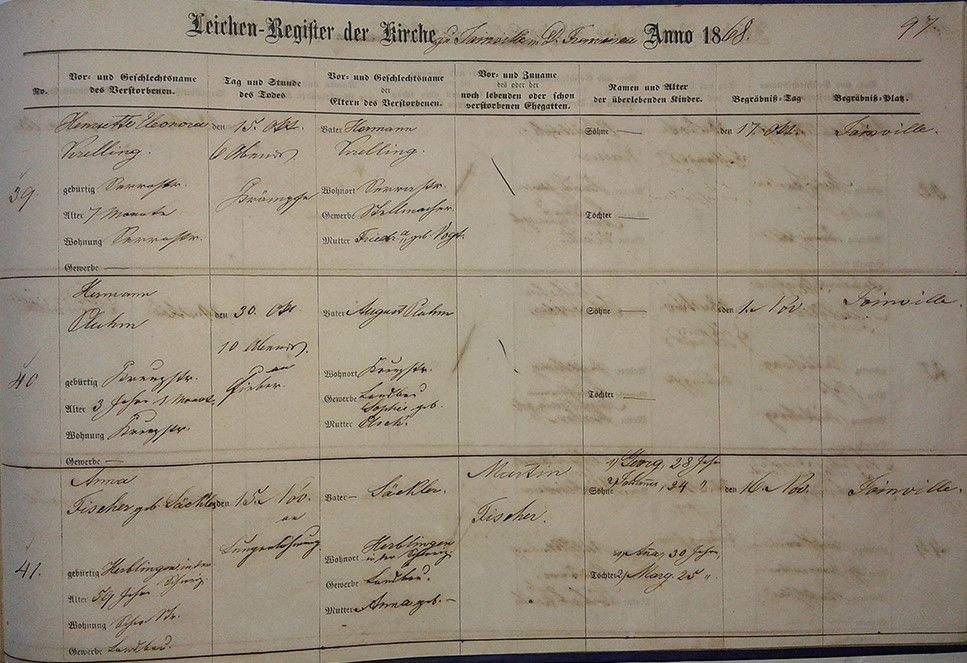 Leichen-Register der Kirche zu Joinville, D. Francisca Anno 1868.
97.
No.
Vor- und Geschlechtsname
des Verstorbenen.
Tag und Stunde
des Todes
Vor- und Geschlechtsname
der
Eltern des Verstorbenen.
Vor- und Zuname
des oder der
noch lebenden oder schon
verstorbenen Ehegatten.
Namen und Alter
der überlebenden Kinder.
Begräbniß-Tag
Begräbniß-Platz.
39.
Henriette Eleonora
Krelling.
gebürtig Serrastr.
Alter 7 Monate
Wohnung Serrastr.
Gewerbe —
den 15. Okt.
6 Abends.
Krämpfe
Vater Hermann
Krelling.
Wohnort Serrastr.
Gewerbe Stellmacher.
Mutter geb. Vogt.
Söhne —
Töchter —
den 17. Okt.
Joinville.
40
Hermann
gebürtig Kreuzstr.
Alter 3 Jahre 1. Monat,
Wohnung Kreuzstr.
Gewerbe —
den 30. Okt
10 Abends.
an
Fieber.
Vater August
Wohnort Kreuzstr.
Gewerbe Landbau
Sophie geb.
Mutter
Söhne —
Töchter —
den 1. Nov.
Joinville.
41.
Anna
Fischer geb. Säckler
gebürtig Herblingen in der
Schweiz.
Alter 59 Jahre
Wohnung Str.
Gewerbe Landbau.
den 15. Nov.
an
Vater — Säckler.
Wohnort Herblingen
in der Schweiz
Gewerbe Landbau.
Mutter Anna geb. —
Martin
Fischer.
1, Georg, 28 Jahr
Söhne 2, 24 "
1, Ana, 30 Jahre,
Töchter 2, Marg. 25 "
den 16. Nov.
Joinville.